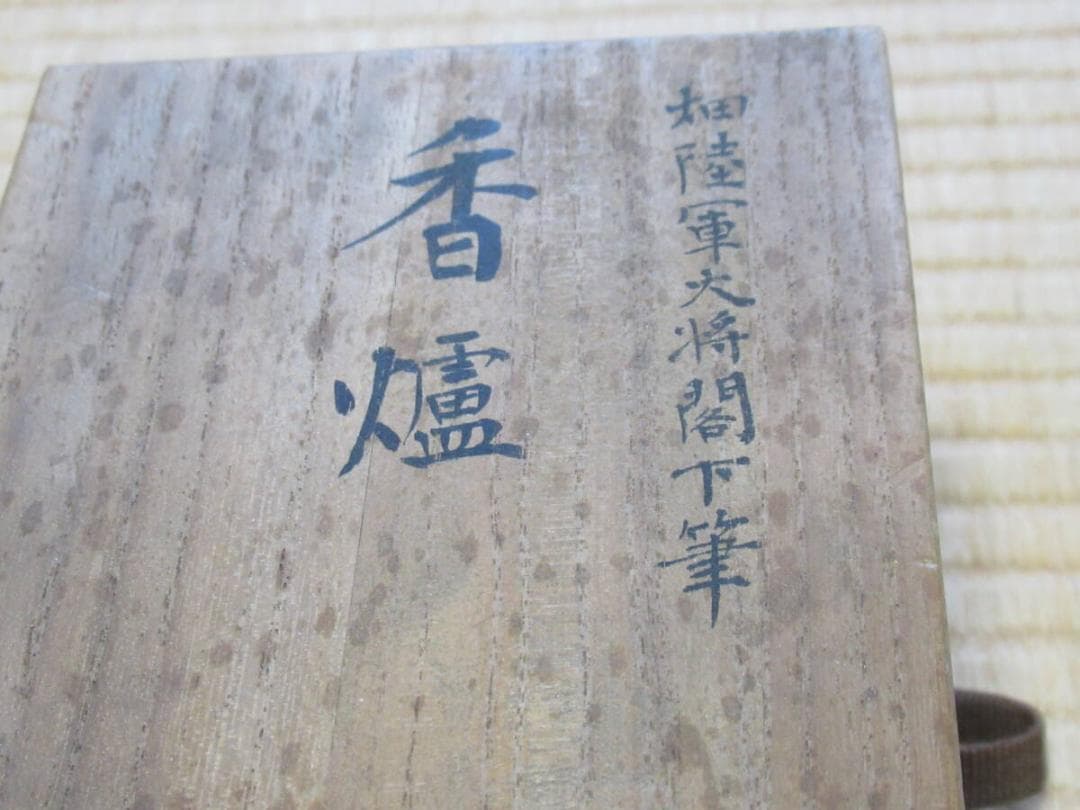 畑陸軍大将閣下筆
香爐